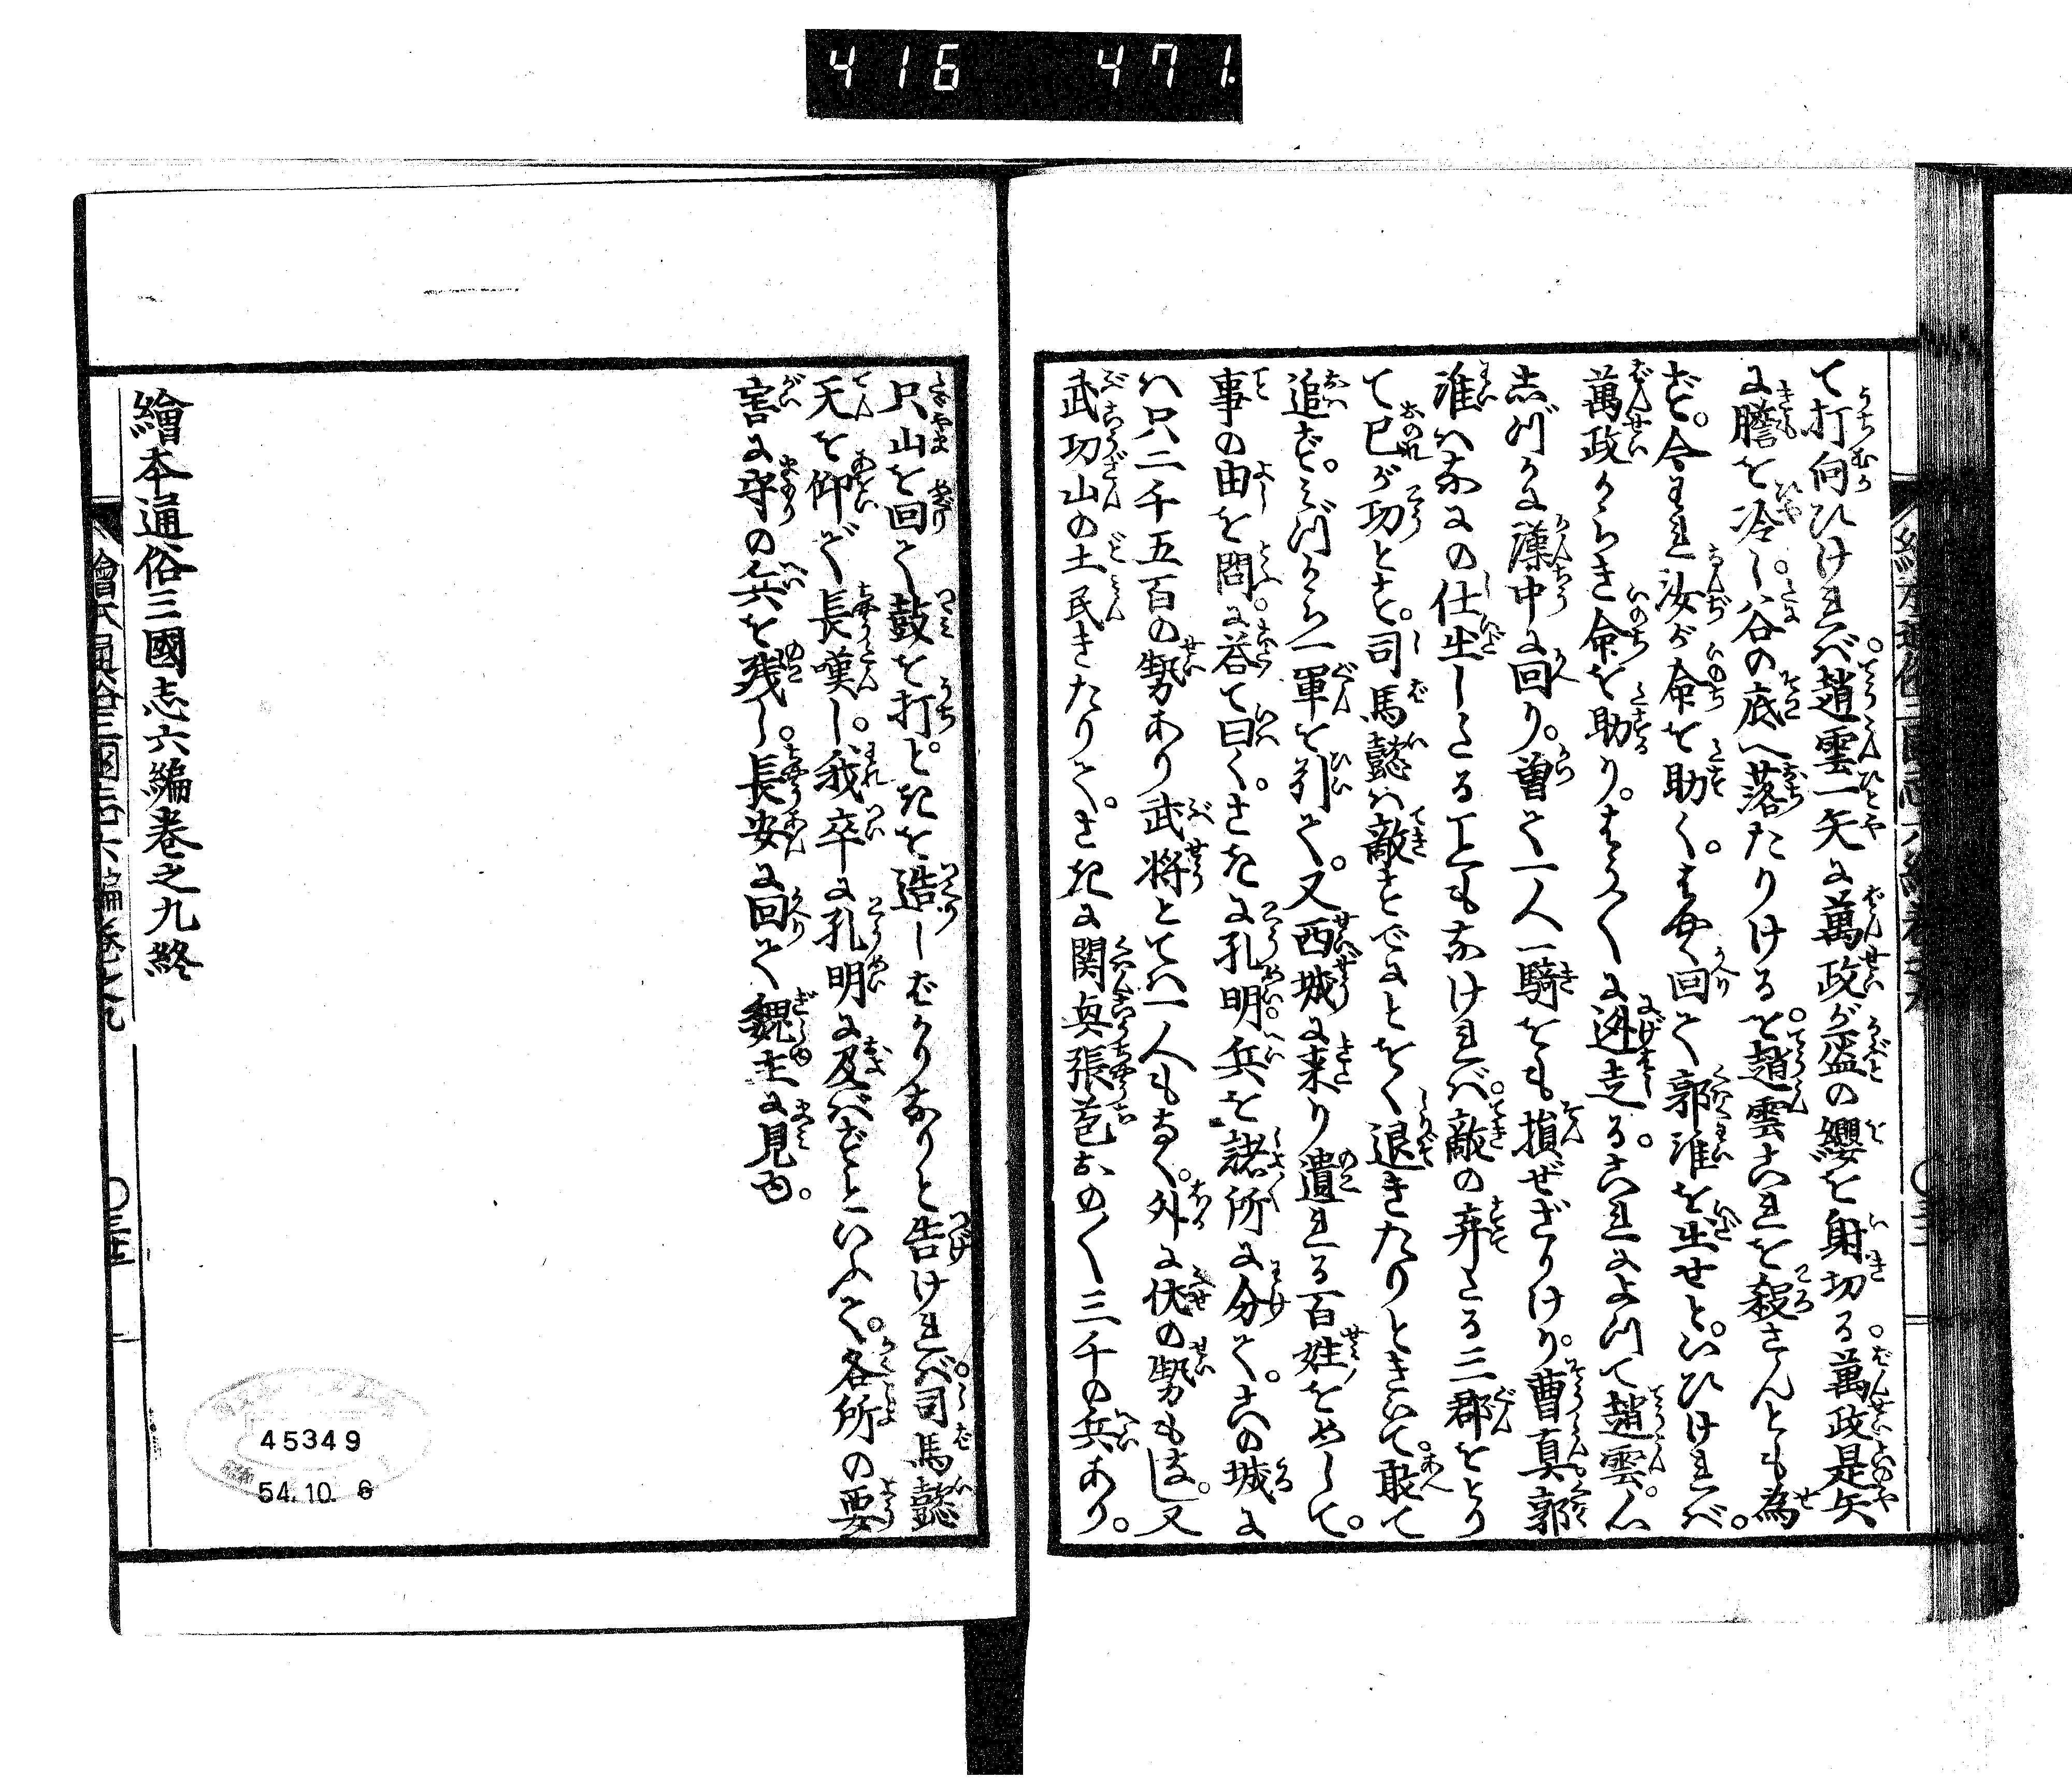 416 471
て打向ひけれバ。趙雲一矢に萬政が盔の纓を射切る。萬政是矢
に膽を冷し。谷の底へ落たりけるを。趙雲これを殺さんとも為
ず。今われ汝が命を助く。はや回て郭淮を出せと。いひけれバ。
萬政からき命を助り。はう〳〵に迯走る。これによつて趙雲。心
しづかに漢中に回り。曽て一人一騎をも損ぜざりけり。曹真郭
淮ハなにの仕出したる㕝もなけれバ。敵の弃たる三郡をとり
て己が功とす。司馬懿ハ敵すでにとをく退きたりときいて。敢て
追ず。みづから一軍を引て。又西城に来り遺れる百姓をめして。
事の由を問に。荅て曰く。さきに孔明。兵を諸所に分て。この城に
ハ只二千五百の勢あり武将とてハ一人もなく。外に伏の勢もなし。又
武功山の土民きたりて。さきに関興張苞おの〳〵三千の兵あり。
只山を回て鼓を打。ときを造しばかりなりと告けれバ。司馬懿
天を仰ぎて長嘆し。我卒に孔明に及バずといふて。各所の要
害に守の兵を残し。長安に回て魏主に見ゆ。
繪本通俗三國志六編巻之九終
繪本通俗三國志六編巻之九
45349
54.10.6